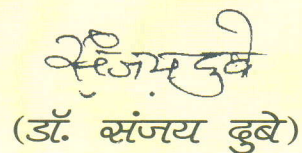 संजय दुबे
(डॉ. संजय दुबे)